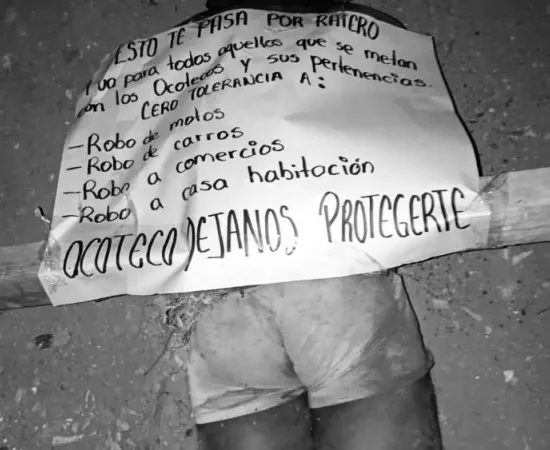 ESTO TE PASA POR RATERO
Y va para todos aquellos que se metan
con los Ocotecos y sus pertenencias.
CERO TOLERANCIA A:
-Robo de motos
-Robo de carros
-Robo a comercios
-Robo a casa habitación
OCOTECO DEJANOS PROTEGERTE